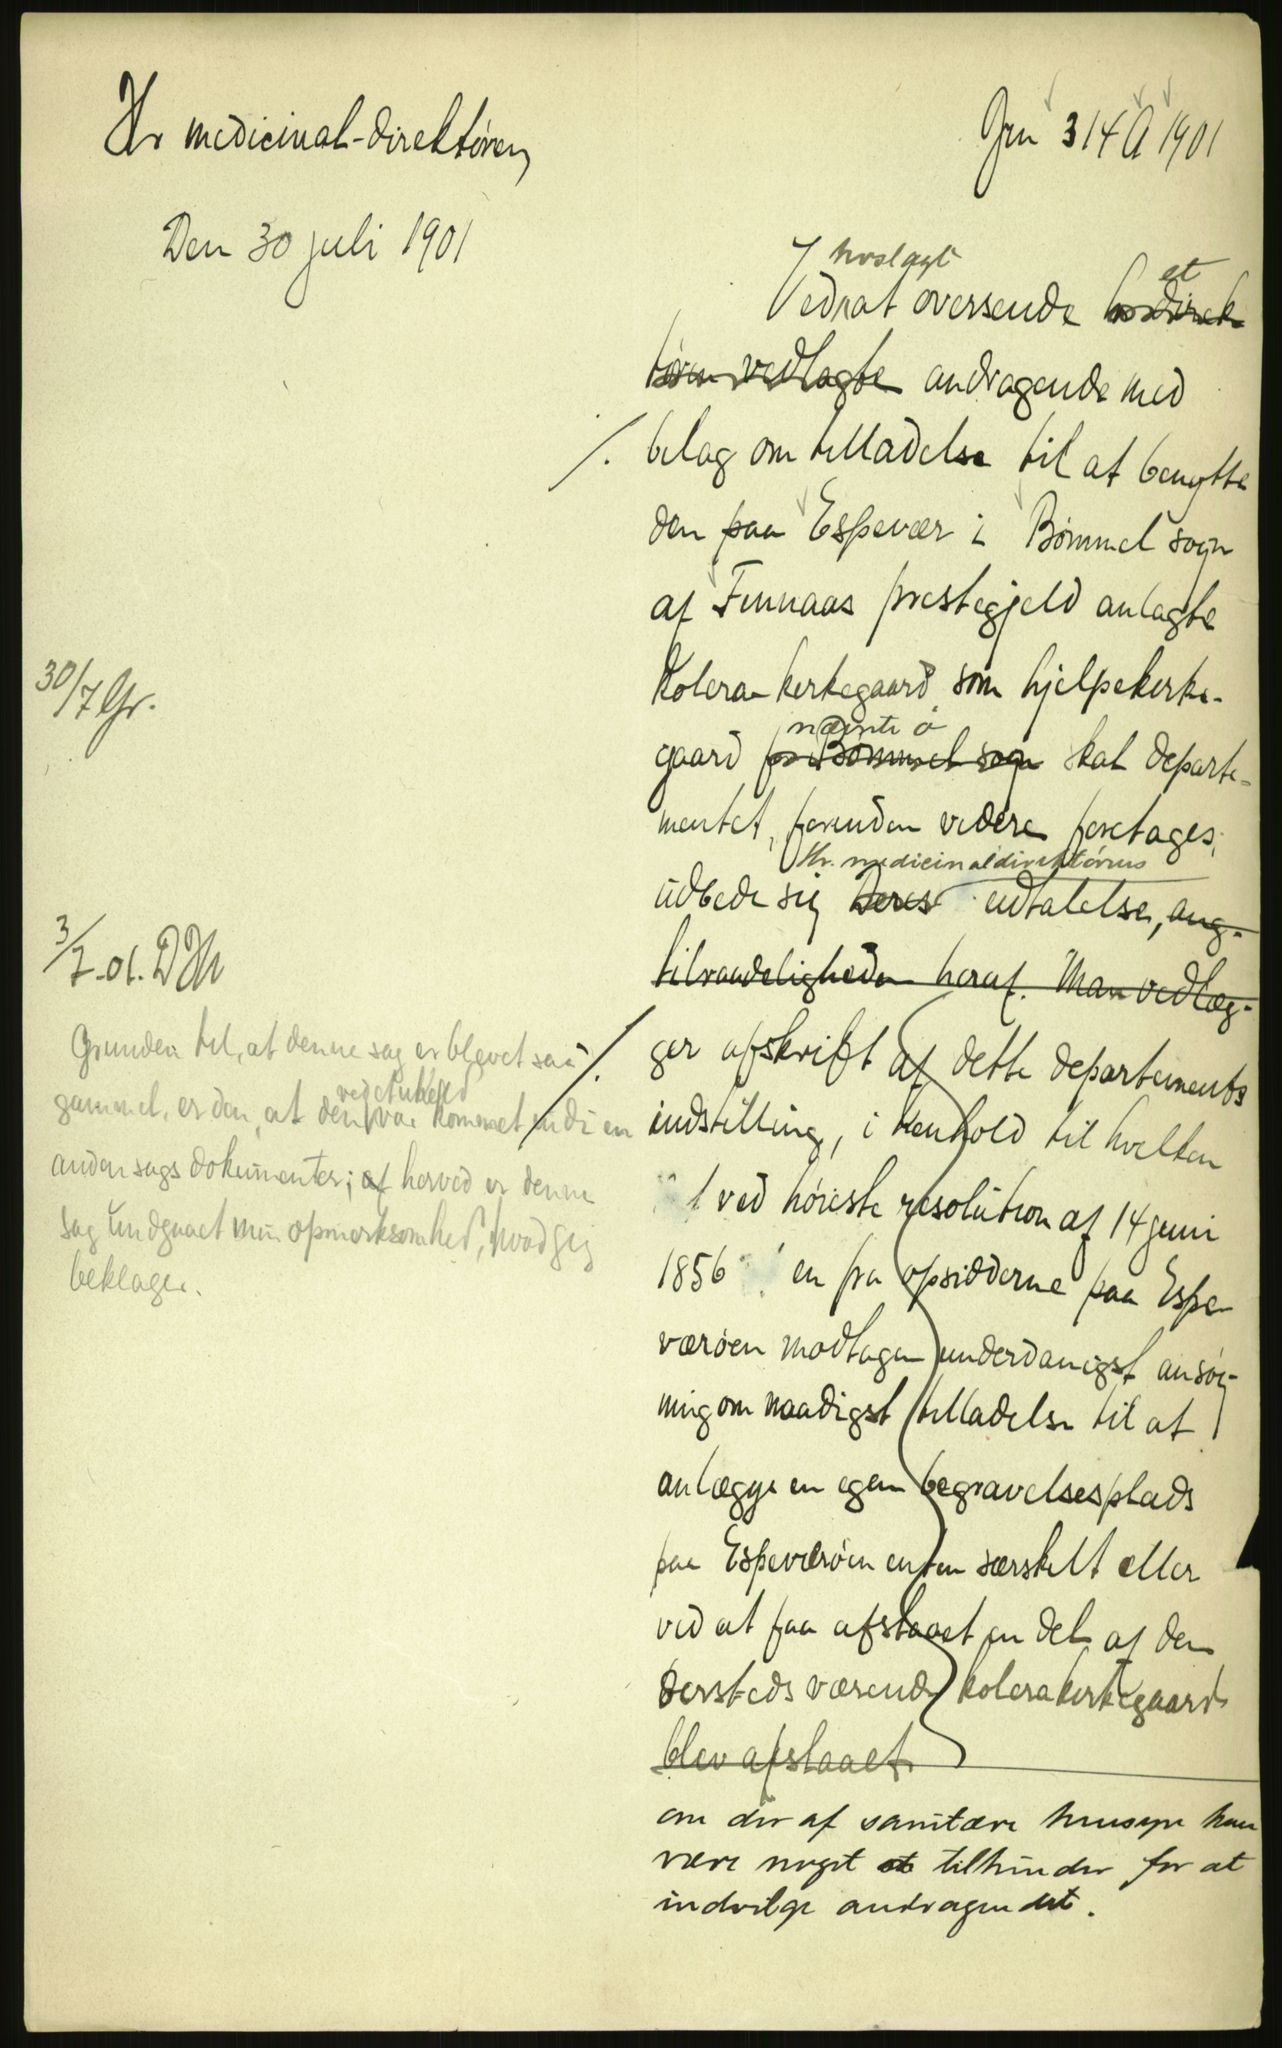 Hr medicinal-direktøren
Den 30 juli 1901
Jrn 314 A 1901
hoslagt
et
Ved at oversende hr direk
tøren vedlagte andragende med
/. belag om tilladelse til at benytte
den paa Espevær i Bømmel sogn
af Finnaas prestegjeld anlagte
Kolera-kirkegaard som hjelpekirke-
nævnte ø
gaard for Bømmel sogn skal departe-
mentet, forinden videre foretages,
Hr. medicinaldirektørens
udbede sig Deres udtalelse, ang.
tilraadeligheden heraf. Man vedlæg-
/. ger afskrift af dette departements
indstilling, i henhold til hvilken
ved høieste resolution af 14 juni
1856 en fra opsidderne paa Espe
værøen modtagen underdanigst ansøg-
ning om naadigst tilladelse til at
anlægge en egen begravelsesplads
paa Espeværøen enten særskilt eller
ved at faa afstaaet en del af den
dersteds værende kolerakirkegaard
blev afslaaet
om der af sanitære hensyn kan
være noget til hinder for at
indvilge andragendet.
30/7 Gr.
3/7-01. DH
Grunden til, at denne sag er blevet saa
ved et uheld
gammel, er den, at den var kommet ind i en
anden sags dokumenter; af herved er denne
sag undgaaet min opmerksomhed, hvad jeg
beklager.